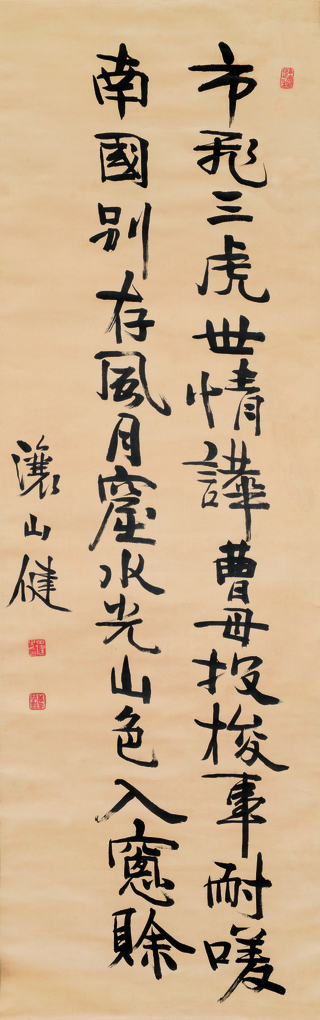 市飛三虎世情譁曹母投梭事耐嗟
南國別存風月窟水光山色入窻賒
瀼山健